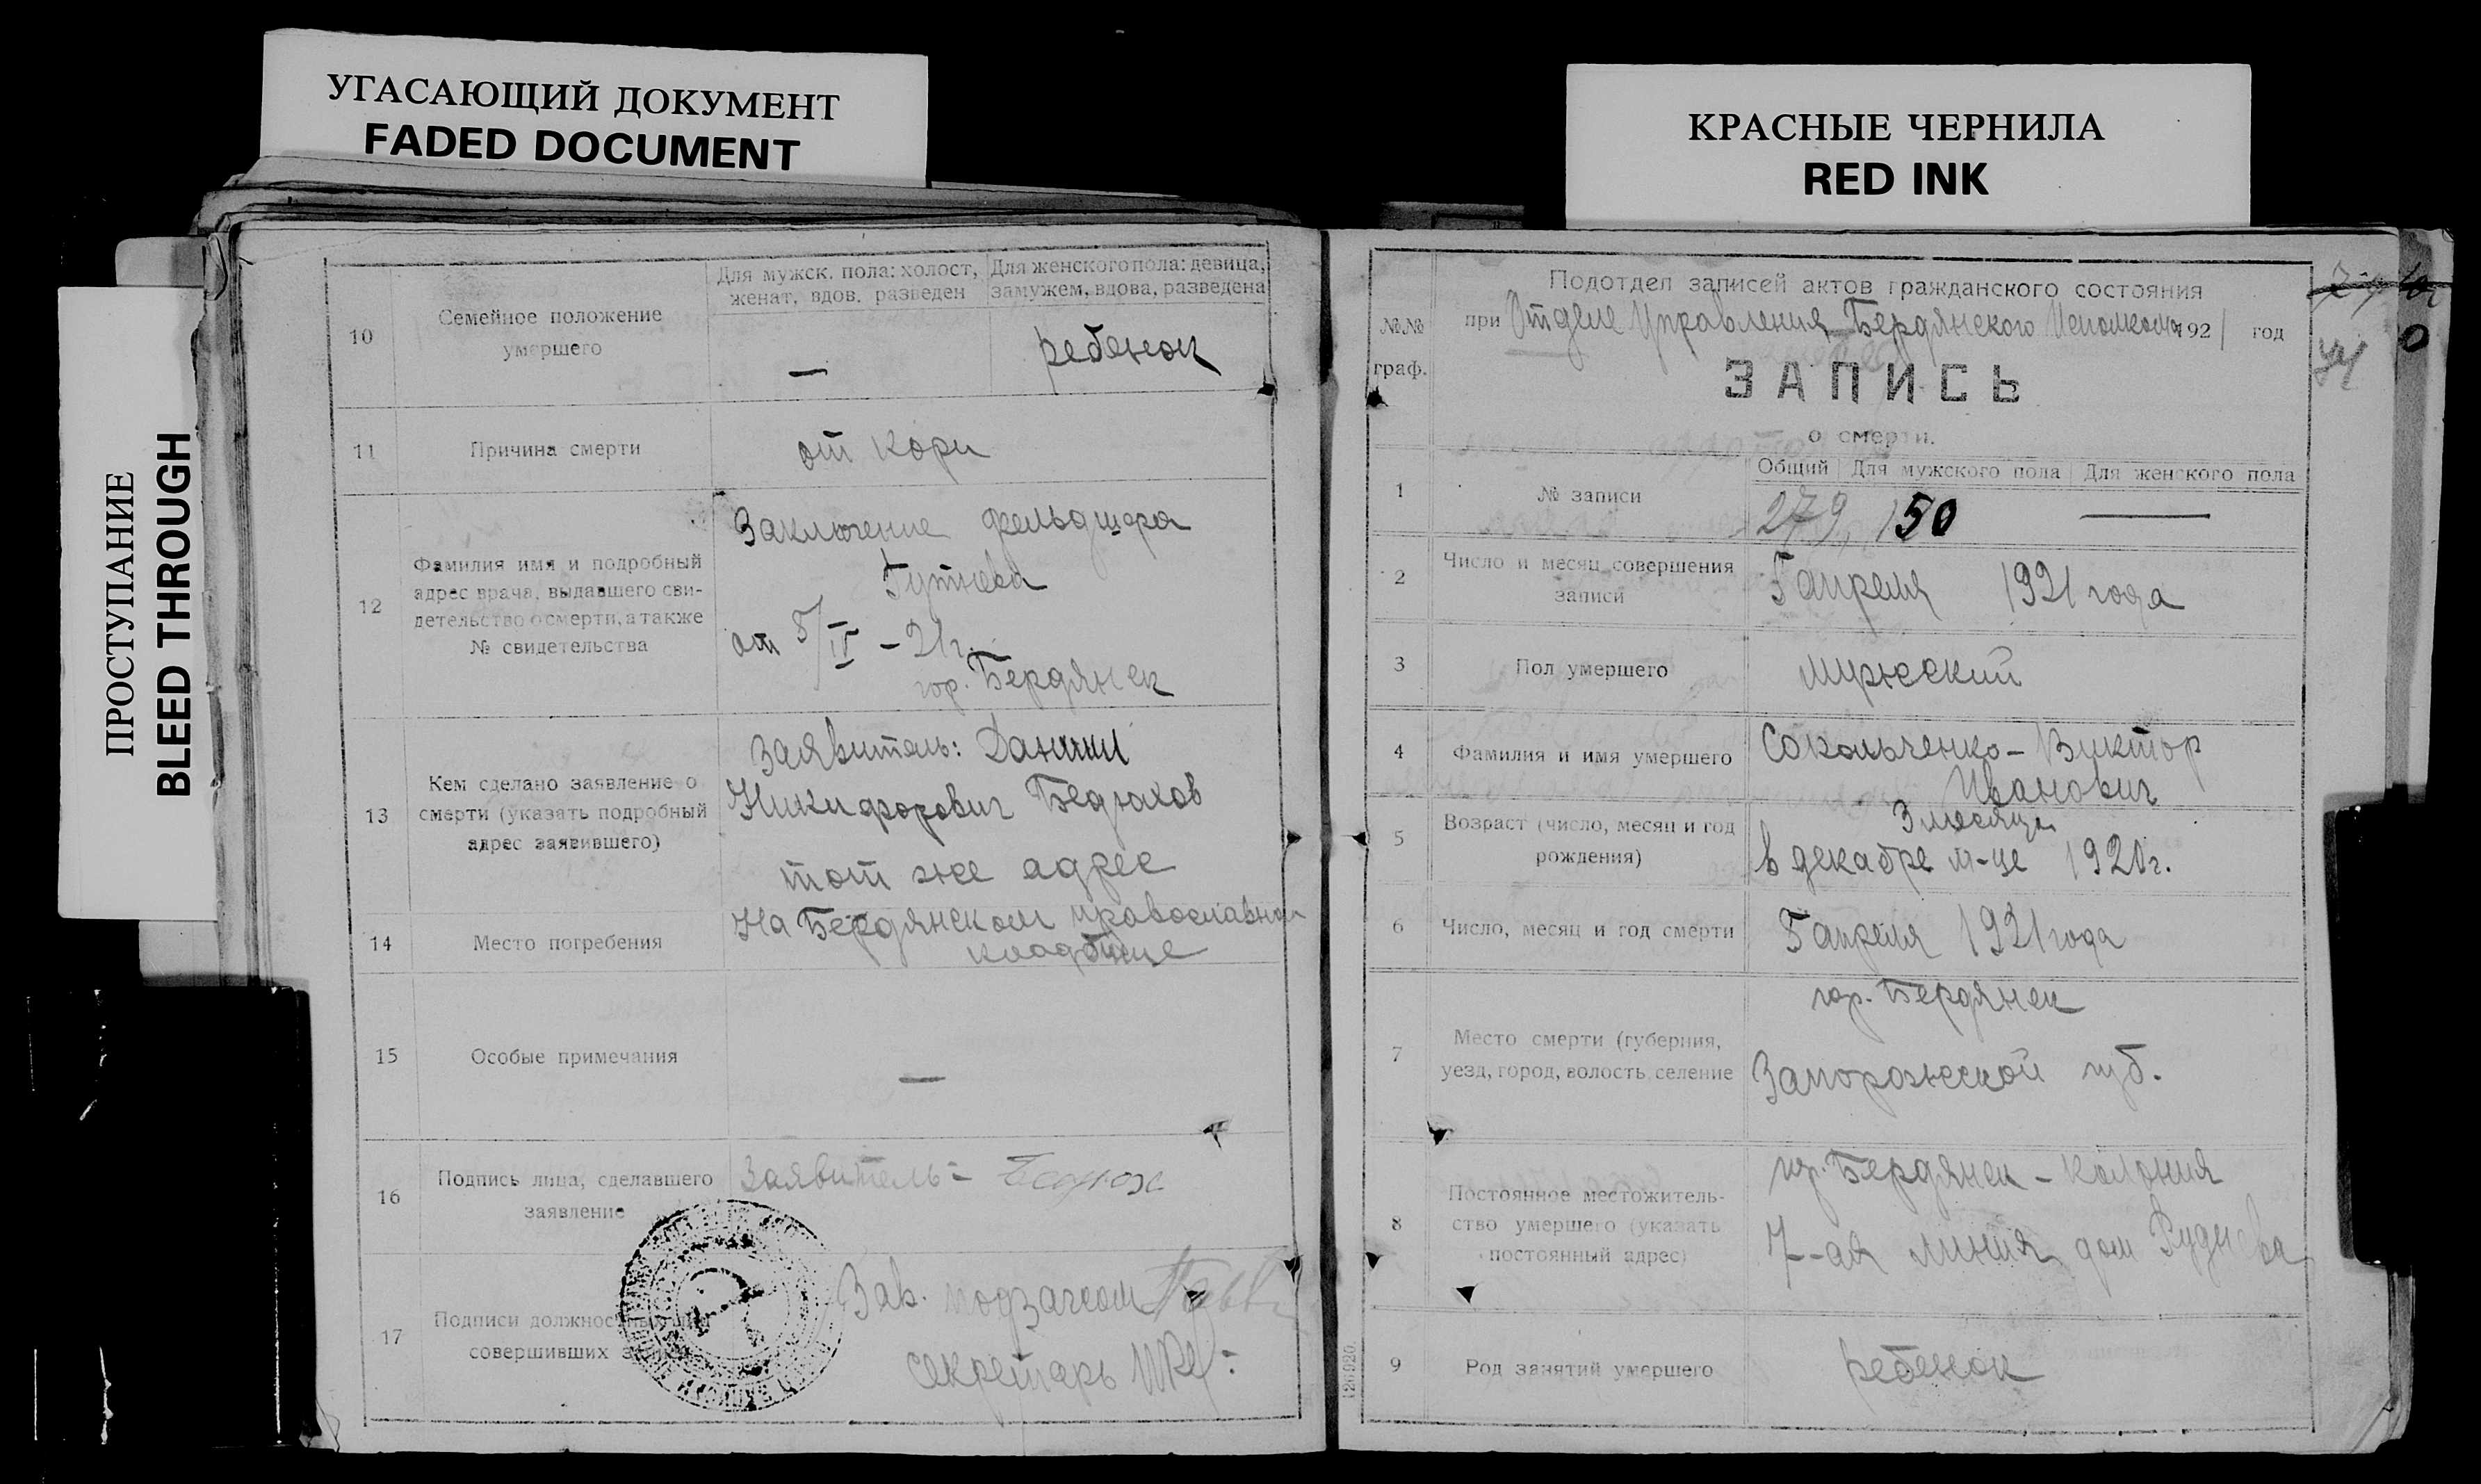 УГАСАЮЩИЙ ДОКУМЕНТ
FADED DOCUMENT
КРАСНЫЕ ЧЕРНИЛА
RED INK
ПРОСТУПАНИЕ
BLEED THROUGH
10
Семейное положение
умершего
Для мужск. пола: холост,
женат, вдов. разведен
Для женского пола: девица,
замужем, вдова, разведена
—
ребенок
11
Причина смерти
от кори
12
Фамилия имя и подробный
адрес врача, выдавшего сви-
детельство о смерти, а также
№ свидетельства
Заключение фельдшера
от 5/IV – 21 г.
гор. Бердянск
13
Кем сделано заявление о
смерти (указать подробный
адрес заявившего)
Заявитель: Даниил
Никифорович Бедюхов
тот же адрес
14
Место погребения
На Бердянском православном
кладбище
15
Особые примечания
—
16
Подпись лица, сделавшего
заявление
Заявитель =
17
Подписи должностных лиц
совершивших запись
Зав. подзагсом
Секретарь
№№
граф.
Подотдел записей актов гражданского состояния
при Отделе Управления Бердянского Исполкома 1921 год
ЗАПИСЬ
о смерти.
1
№ записи
Общий
Для мужского пола
Для женского пола
279
150
—
2
Число и месяц совершения
записи
5 апреля 1921 года
3
Пол умершего
мужеский
4
Фамилия и имя умершего
Сокольченко – Виктор
Иванович
5
Возраст (число, месяц и год
рождения)
3 месяца
в декабре м-це 1920 г.
6
Число, месяц и год смерти
5 апреля 1921 года
7
Место смерти (губерния,
уезд, город, волость, селение
гор. Бердянск
Запорожской губ.
8
Постоянное местожитель-
ство умершего (указать
постоянный адрес)
гор. Бердянск – колония
7-ая линия дом Руднева
9
Род занятий умершего
ребенок
126920.